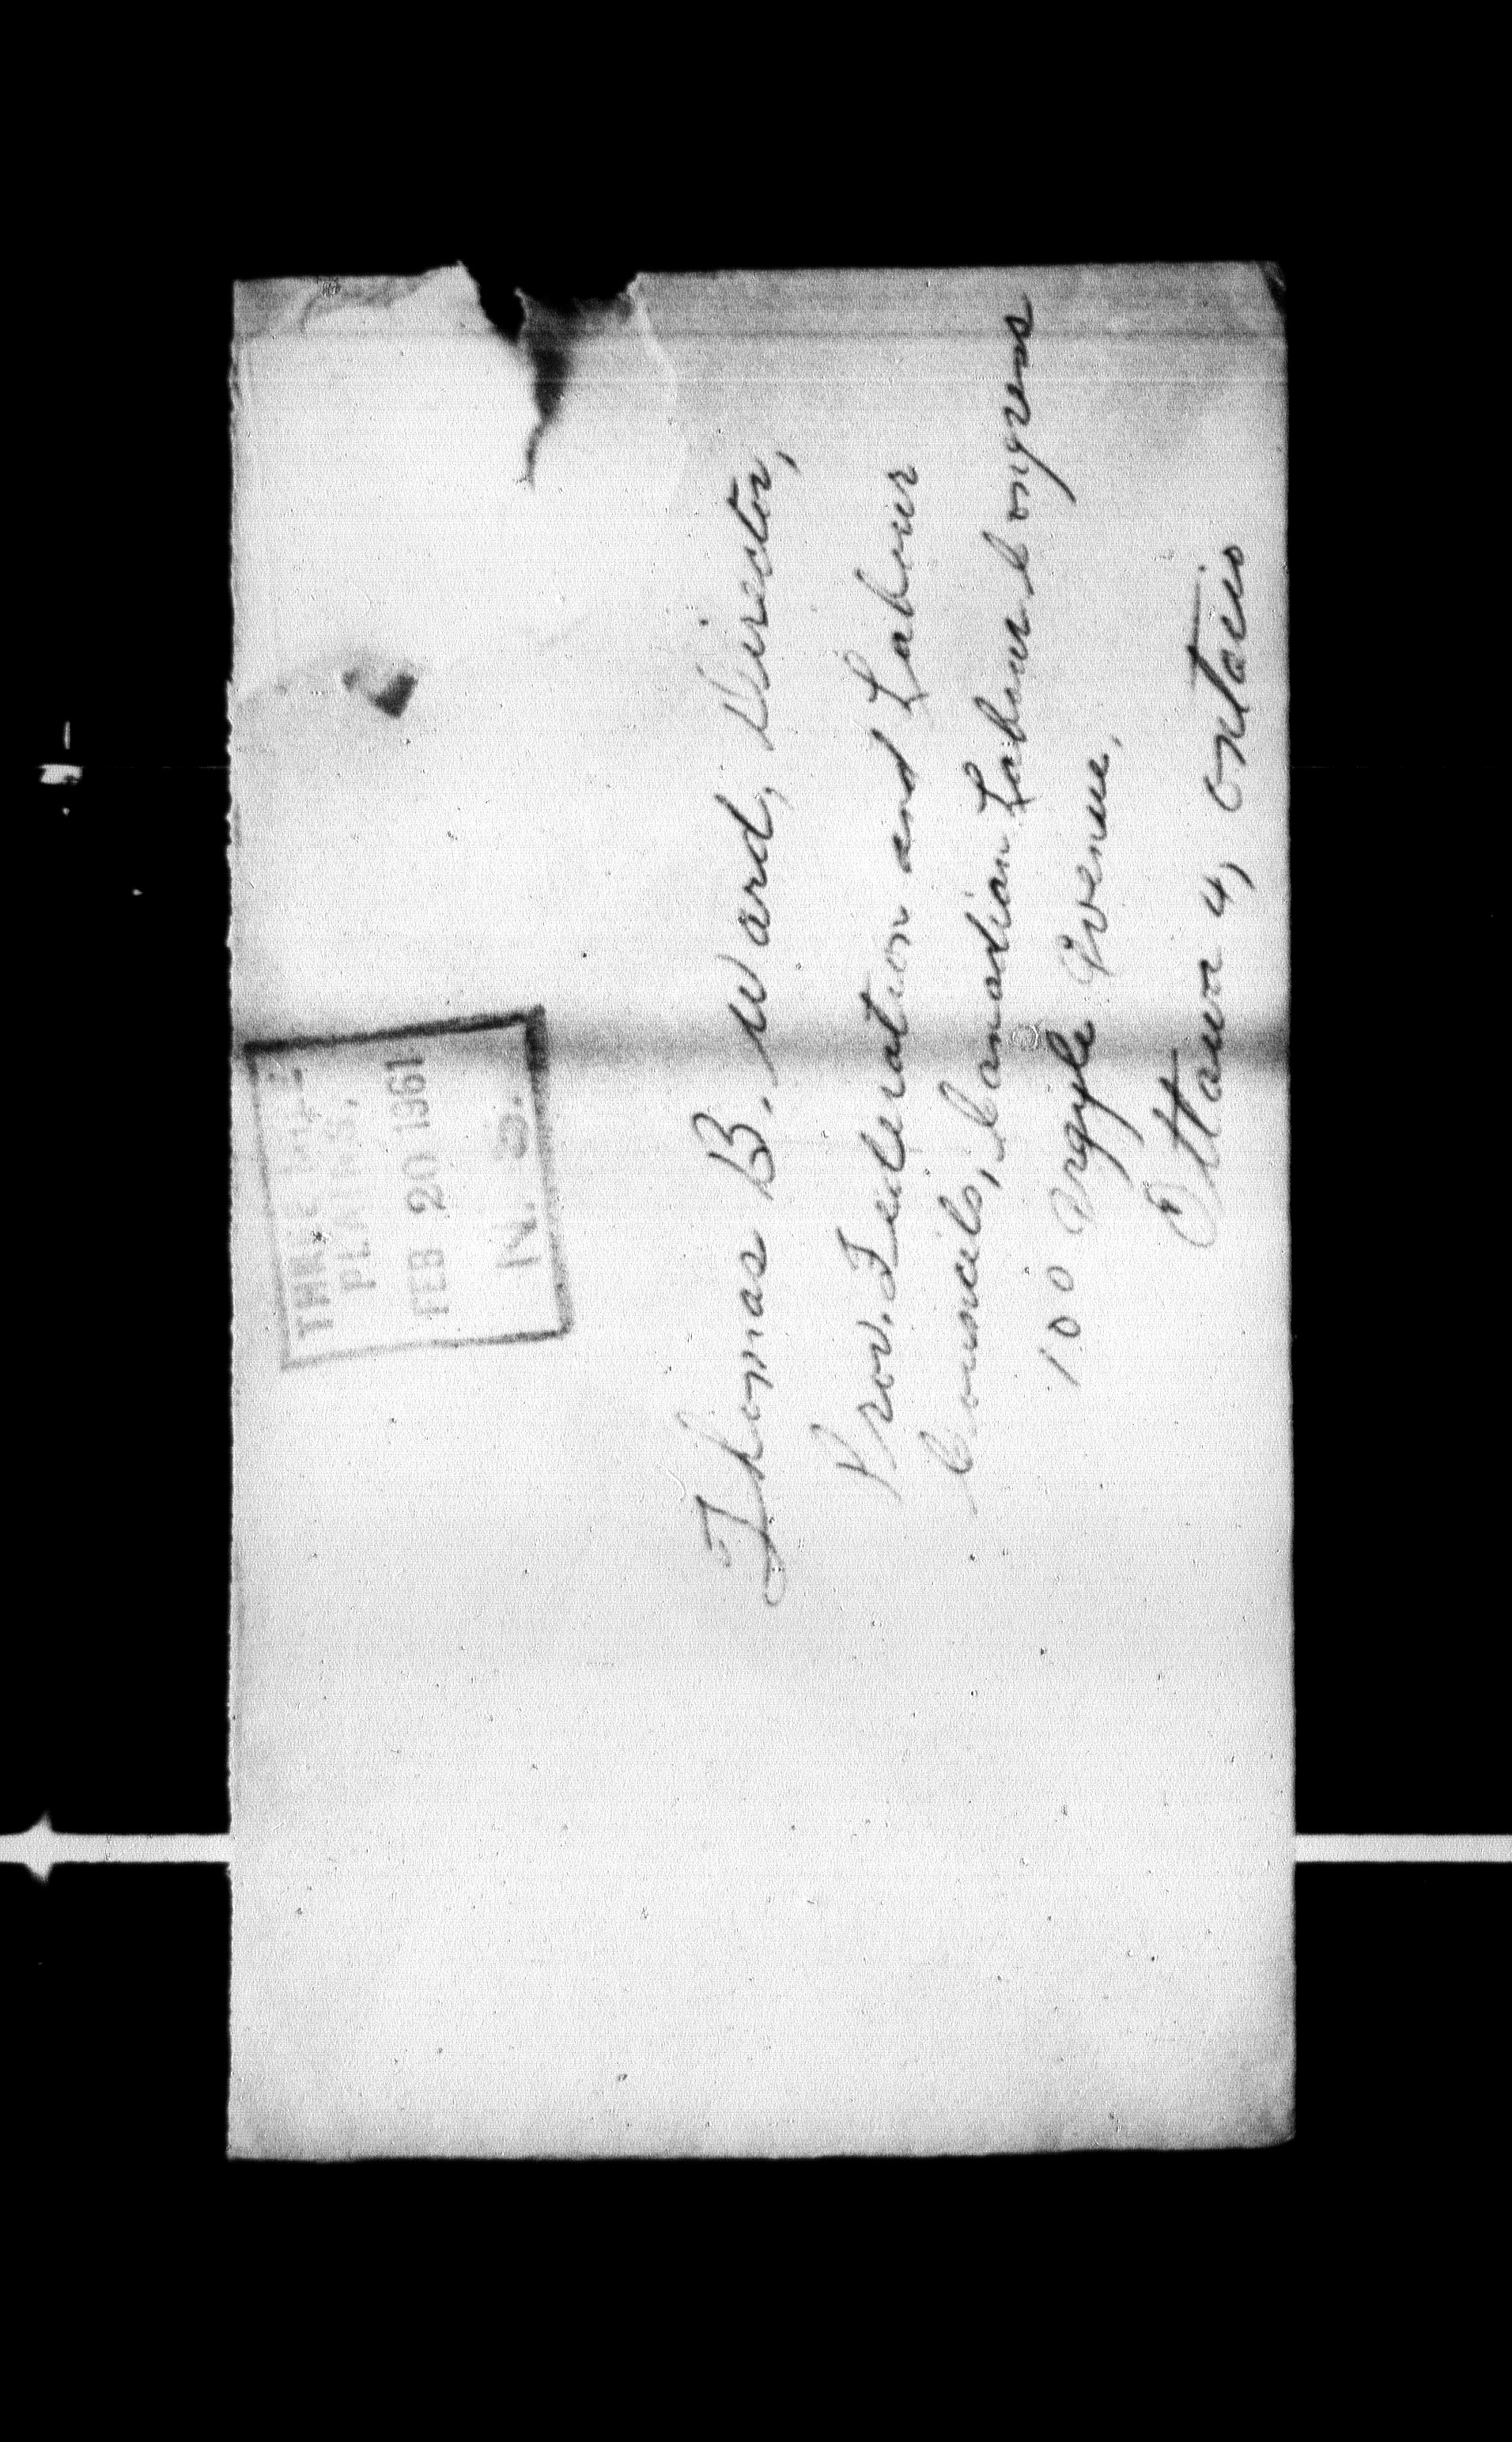 PLAINS,
FEB 20 1961
N. S.
Thomas B. Ward, Director,
Prov. Federation and Labour
Councils, Canadian Labour Congress
100 Argyle Avenue,
Ottawa 4, Ontario